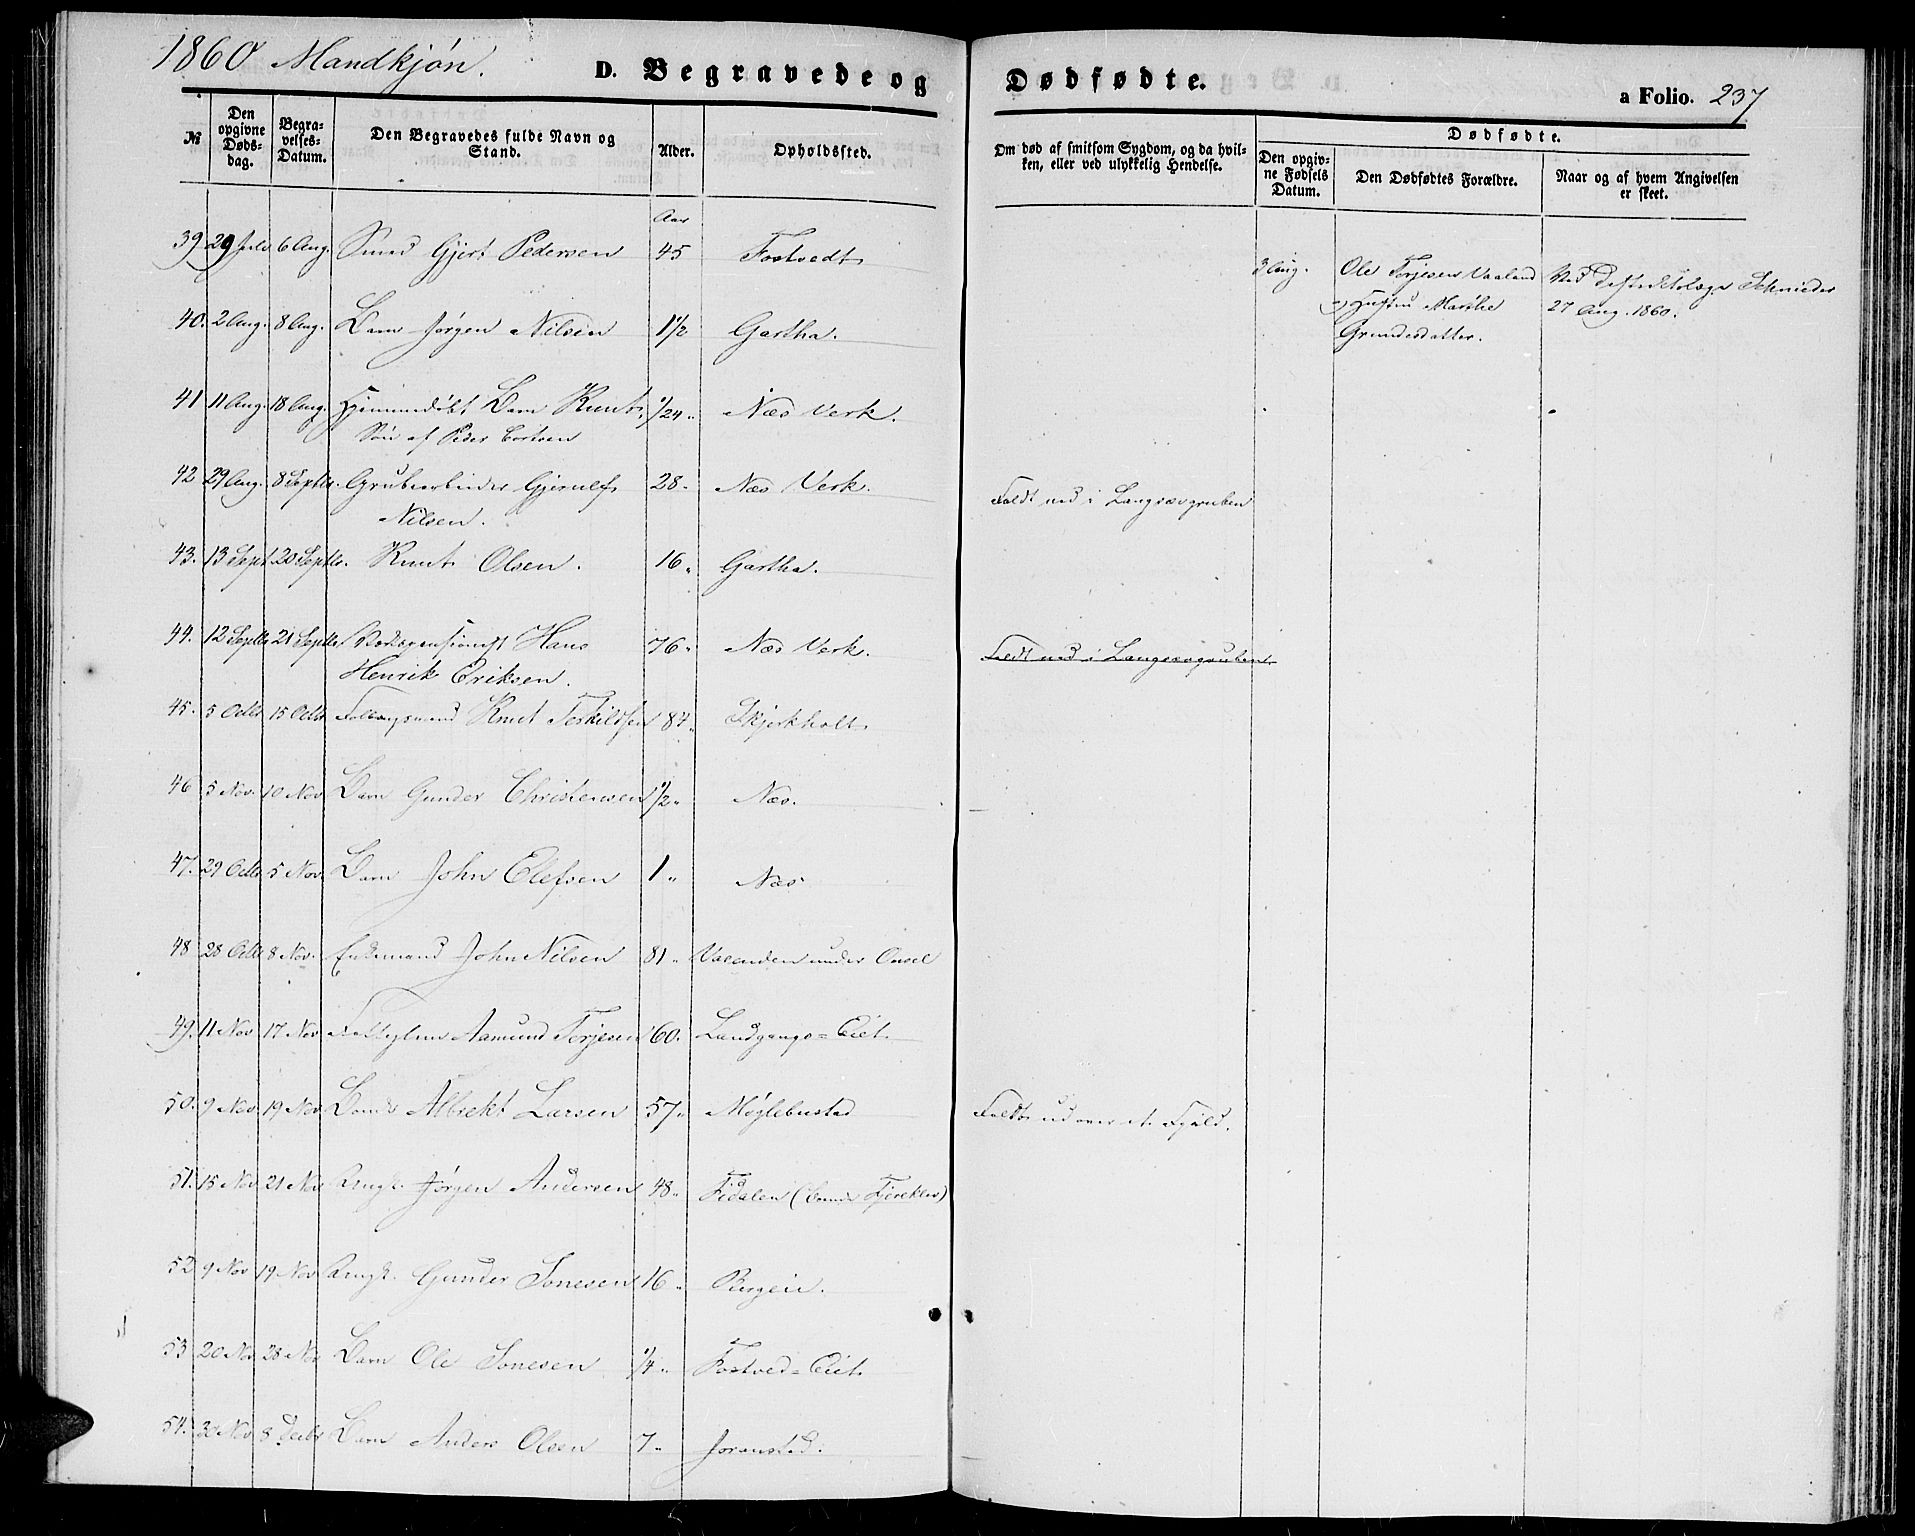 1860 Mandkjøn. D. Begravede og Dødfødte. a Folio. 237
№ Den opgivne Døds-dag. Begra-velses-Datum. Den Begravedes fulde Navn og Stand. Alder. Opholdssted. Om død af smitsom Sygdom, og da hvil-ken, eller ved ulykkelig Hendelse. Dødfødte.
Den opgiv-ne Fødsels Datum. Den Dødfødtes Forældre. Naar og af hvem Angivelsen er skeet.
Aar
39 29 Juli 6 Aug. Smed Gjert Pedersen 45 Fostvedt
3 Aug. Ole Torjesen Vaaland Ved
Hustru Marthe 27 Aug. 1860.
Grundesdatter.
40. 2 Aug. 8 Aug. Barn Jørgen Nilsen 1 1/2 Gartha.
41 11 Aug. 18 Aug. Hjemmedøbt Barn Knut, 1/24 " Næs Verk.
Søn af Peder
42 29 Aug. 8 Septbr. Grubearbeider Gjerulf 28 " Næs Verk. Faldt ned i Langsævgruben
Nilsen.
43. 13 Sept. 20 Septbr. Knut Olsen. 16 " Gartha.
44. 12 Septbr 21 Septbr Hans 76 " Næs Verk. Faldt ned i Langsævgruben
Henrik Eriksen.
45. 5 Octbr 15 Octbr Knut Terkildsen 87 " Skjerkholt
46 5 Nov. 10 Nov Barn Gunder Christensen 1/2 " Næs.
47. 29 Octbr 5 Nov. Barn John Elefsen 1 " Næs
48 28 Octbr 8 Nov. Enkemand John Nilsen 81 " under Oosel
49. 11 Nov 17 Nov Aamund Torjesen 60. Landgangs=Eiet.
50. 9 Nov. 19 Nov Albrekt Larsen 57 " Møglebustad Faldt ud over et Fjeld.
51. 15 Nov. 21 Nov Ungk. Jørgen Andersen 48 " Fidalen
52 9 Nov 19 Nov Ungk. Gunder Tonesen 16 " Bergen.
53 20 Nov 28 Nov Barn Ole Tonesen 1/4 " Fostved=Eiet.
54. 30 Nov 8 Decbr Barn Anders Olsen 7 " Joranstad.